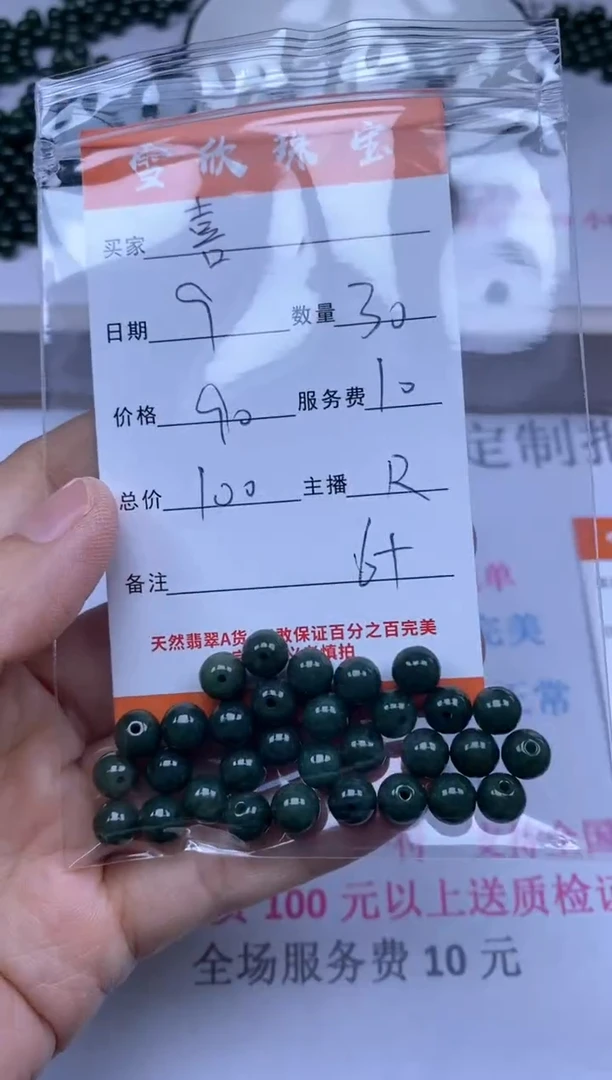 雪欣珠宝
买家 喜
日期 9 数量 30
价格 90 服务费 10
总价 100 主播 R
备注 6+
天然翡翠A货 敢保证百分之百完美
慎拍
定制
单
完美
正常
100元以上送质检证
全场服务费10元